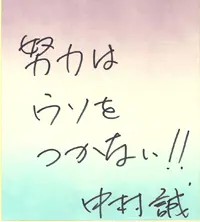 努力は
ウソを
つかない!!
中村誠